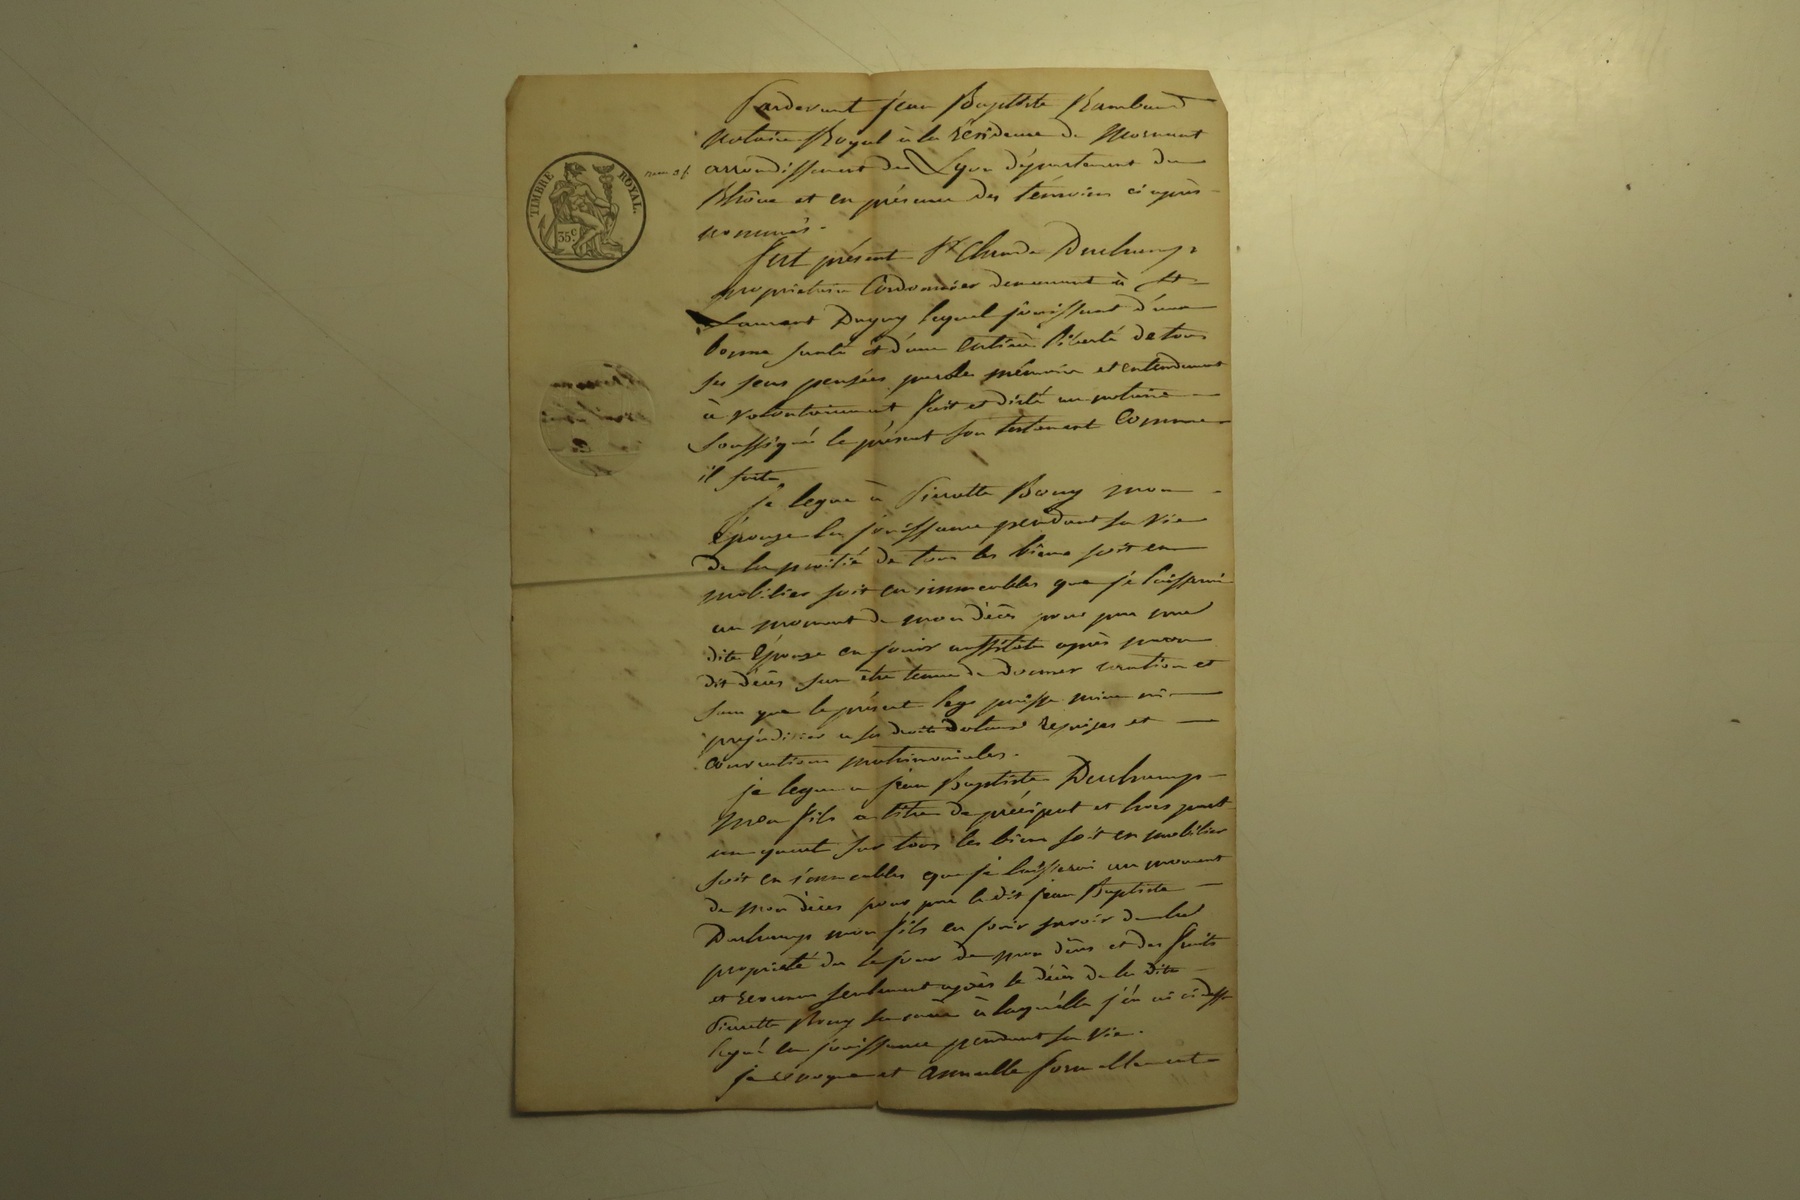 Pardevant jean Baptiste Rambaud
Notaire Royal à la résidence de Mornant
arrondissement de Lyon département du
Rhône et en présence des témoins ci après
nommés.
TIMBRE ROYAL.
35 c
fut présent Sr Claude Duchamp
propriétaire Cordonnier demeurant à St
Laurent Dagny lequel jouissant d'une
bonne santé et d'une entière liberté de tous
ses sens pensées parole mémoire et entendement
à volontairement fait et dicté au notaire
soussigné le présent son testament Comme
il suit
je legue à Pierrette Bony mon
Épouse la jouissance pendant sa vie
de la moitié de tous les biens soit en
mobilier soit en immeubles que je laisserai
au moment de mon décès pour par ma
dite Épouse en jouir aussitôt après mon
dit décès sans être tenue de donner caution et
sans que le présent legs puisse nuire ni
prejudicier a ses droits dotaux reprises et
conventions matrimoniales.
je legue a jean Baptiste Duchamp
mon fils a titre de préciput et hors part
un quart sur tous les biens soit en mobilier
soit en immeubles que je laisserai au moment
de mon décès pour par le dit jean Baptiste
Duchamp mon fils en jouir savoir de la
propriété dès le jour de mon décès et des fruits
et revenus seulement après le décès de la dite
Pierrette Bony sa mère à laquelle j'en ai ci dessus
légué la jouissance pendant sa vie.
je révoque et annulle formellement